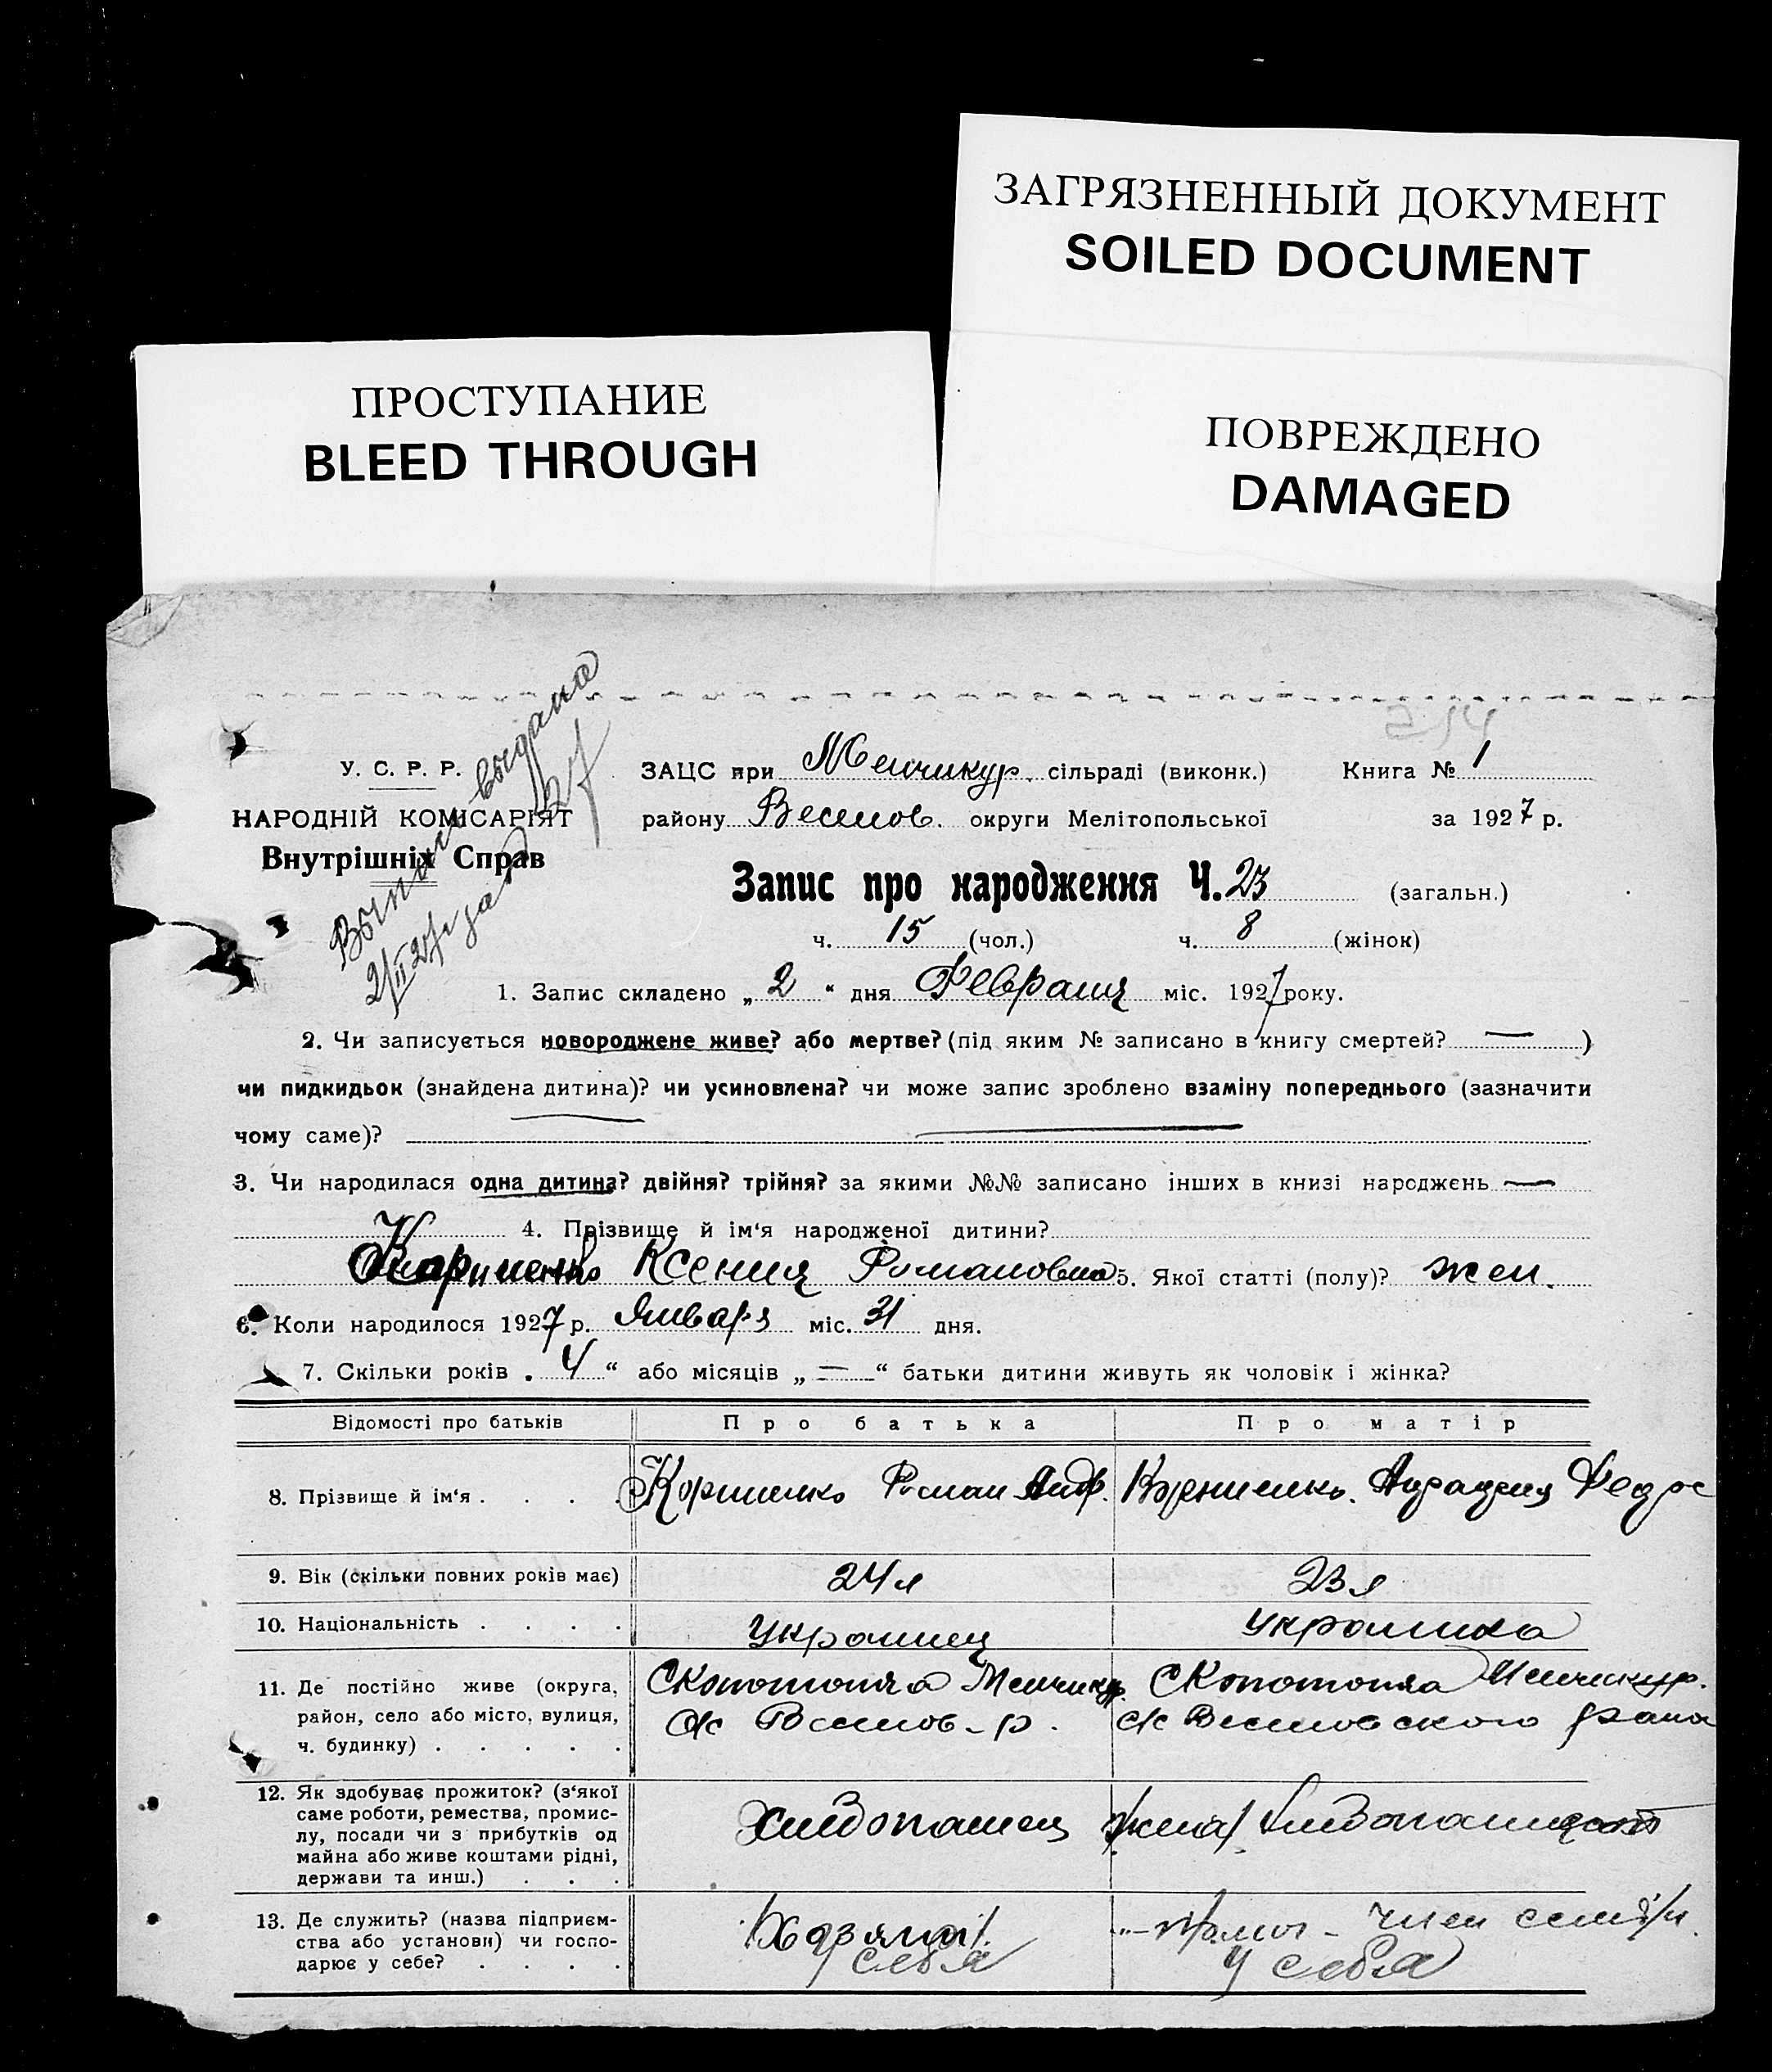 ЗАГРЯЗНЕННЫЙ ДОКУМЕНТ
SOILED DOCUMENT
ПРОСТУПАНИЕ
BLEED THROUGH
ПОВРЕЖДЕНО
DAMAGED
214
Выпись выдана
2/II 27 г за № 27
У. С. Р. Р.
НАРОДНІЙ КОМІСАРІЯТ
Внутрішніх Справ
ЗАЦС при Менчикур. сільраді (виконк.) Книга № 1
району Веселов. округи Мелітопольської за 1927 р.
Запис про народження Ч. 23 (загальн.)
ч. 15 (чол.) ч. 8 (жінок)
1. Запис складено „ 2 “ дня Февраля міс. 1927 року.
2. Чи записується новороджене живе? або мертве? (під яким № записано в книгу смертей? — )
чи пидкидьок (знайдена дитина)? чи усиновлена? чи може запис зроблено взаміну попереднього (зазначити
чому саме)?
3. Чи народилася одна дитина? двійня? трійня? за якими №№ записано інших в книзі народжень —
4. Прізвище й ім'я народженої дитини?
Корниенко Ксения Романовна 5. Якої статті (полу)? жен.
6. Коли народилося 1927 р. Января міс. 31 дня.
7. Скільки років „ 4 “ або місяців „ — “ батьки дитини живуть як чоловік і жінка?
Відомості про батьків Про батька Про матір
8. Прізвище й ім'я . . . . Корниенко Роман Анд. Корниенко Федос
9. Вік (скільки повних років має) 24 л 23 л
10. Національність . . . . Украинец Украинка
11. Де постійно живе (округа, район, село або місто, вулиця, ч. будинку) . . . . .
С Копотопка Менчикур. с/с Веселов-р. С Копотопка Менчикур. с/с Веселовского раиа
12. Як здобуває прожиток? (з'якої саме роботи, ремества, промис-
лу, посади чи з прибутків од майна або живе коштами рідні,
держави та инш.) . . .
Хлебопашец /жена/ Хлебопашество
13. Де служить? (назва підприєм-
ства або установи) чи госпо-
дарює у себе? . . . .
/Хозяин/ у себя член семьи у себя